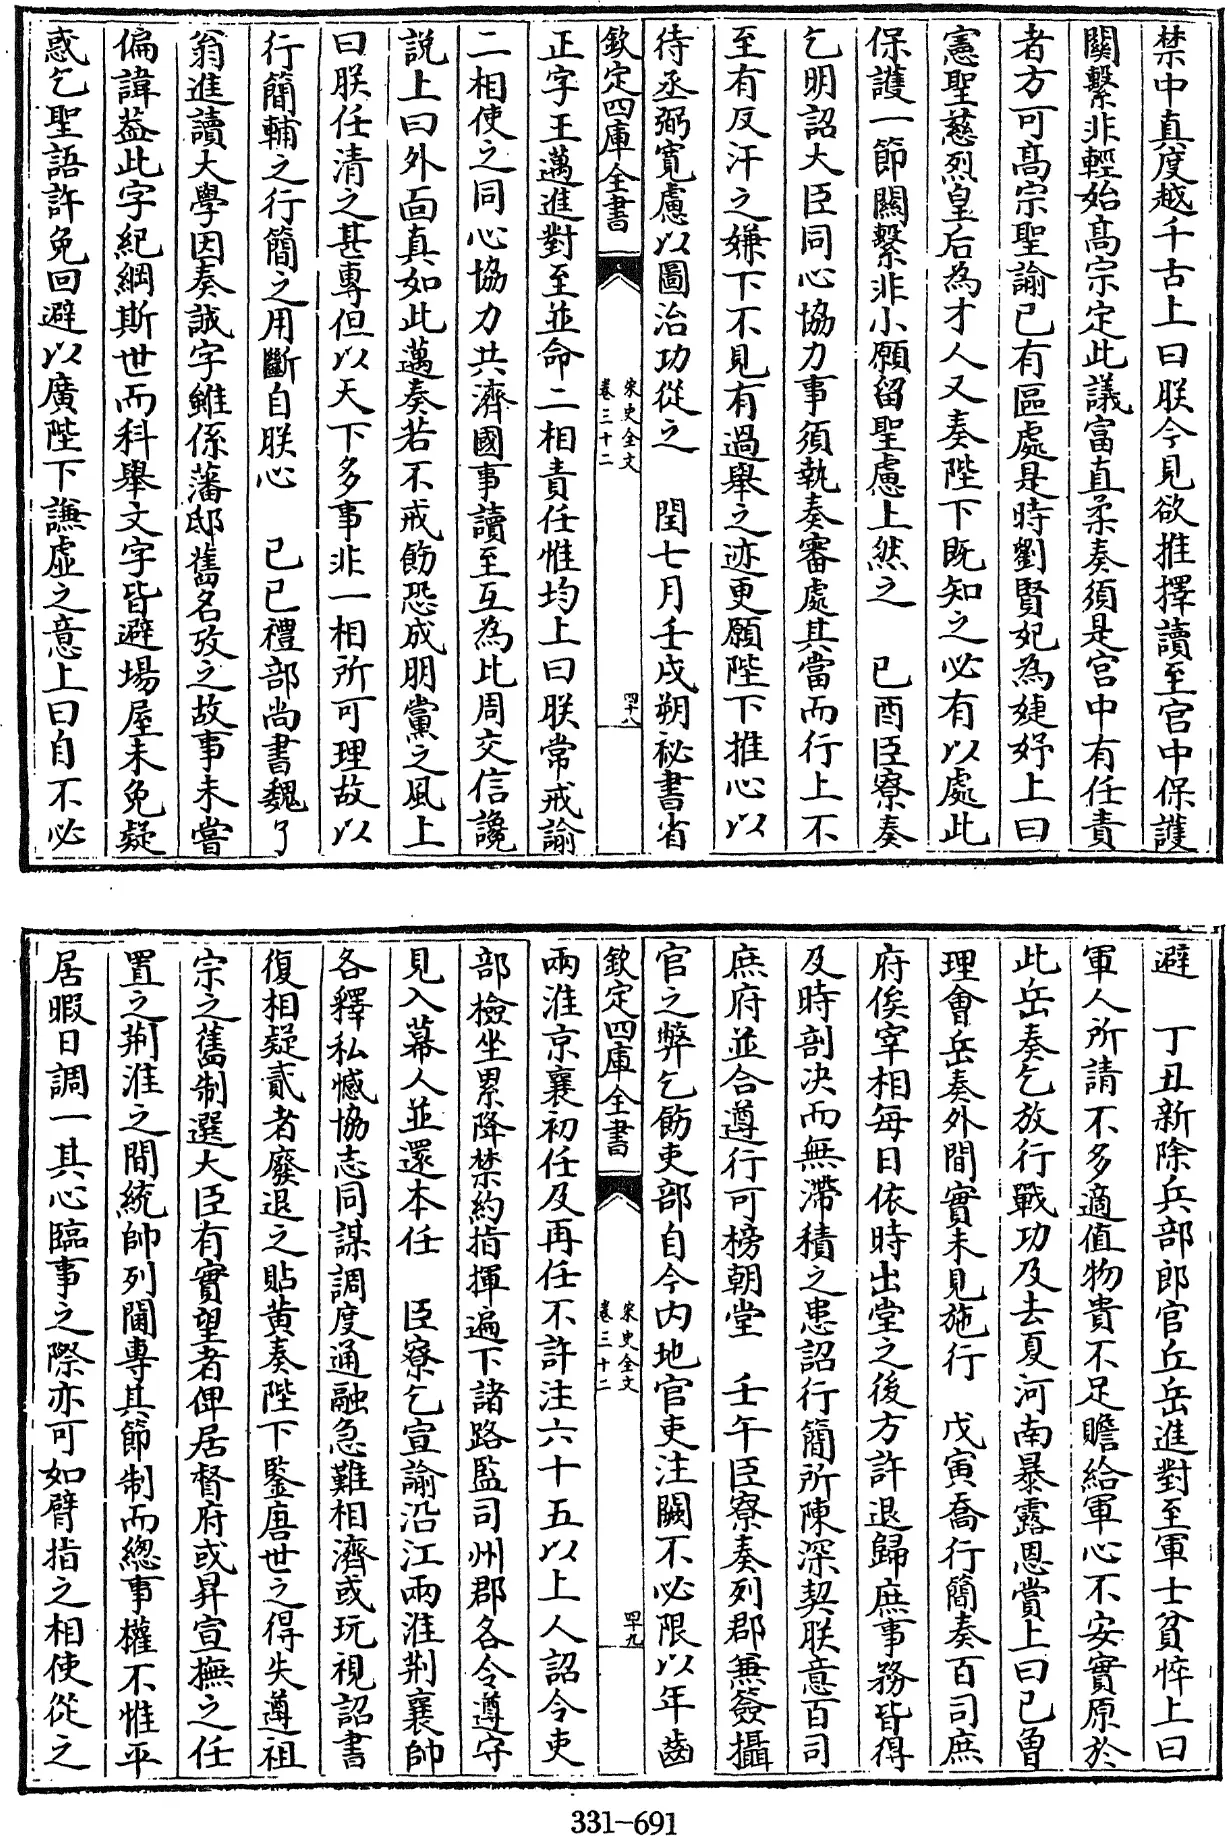 禁中真度越千古上曰朕今見欲推擇讀至宫中保護
關繫非輕始髙宗定此議富直柔奏須是宫中有任責
者方可髙宗聖諭已有區處是時劉賢妃為婕妤上曰
憲聖慈烈皇后為才人又奏陛下既知之必有以處此
保護一節關繫非小願留聖慮上然之　己酉臣寮奏
乞明詔大臣同心協力事須執奏審處其當而行上不
至有反汗之嫌下不見有過舉之迹更願陛下推心以
待丞弼寛慮以圖治功從之　閏七月壬戌朔祕書省
欽定四庫全書　宋史全文卷三十二　四十八
正字王邁進對至並命二相責任惟均上曰朕常戒諭
二相使之同心協力共濟國事讀至互為比周交信讒
説上曰外面真如此邁奏若不戒飭恐成朋黨之風上
曰朕任清之甚專但以天下多事非一相所可理故以
行簡輔之行簡之用斷自朕心　己巳禮部尚書魏了
翁進讀大學因奏誠字雖係藩邸舊名攷之故事未嘗
偏諱葢此字紀綱斯世而科舉文字皆避場屋未免疑
惑乞聖語許免回避以廣陛下謙虚之意上曰自不必
避　丁丑新除兵部郎官丘岳進對至軍士貧悴上曰
軍人所請不多適值物貴不足贍給軍心不安實原於
此岳奏乞放行戰功及去夏河南暴露恩賞上曰已曾
理會岳奏外間實未見施行　戊寅喬行簡奏百司庶
府俟宰相每日依時出堂之後方許退歸庶事務皆得
及時剖决而無滯積之患詔行簡所陳深契朕意百司
庶府並合遵行可榜朝堂　壬午臣寮奏列郡兼僉攝
官之弊乞飭吏部自今内地官吏注闕不必限以年齒
欽定四庫全書　宋史全文卷三十二　四十九
兩淮京襄初任及再任不許注六十五以上人詔令吏
部檢坐累降禁約指揮遍下諸路監司州郡各令遵守
見入幕人並還本任　臣寮乞宣諭沿江兩淮荆襄帥
各釋私憾協志同謀調度通融急難相濟或玩視詔書
復相疑貳者廢退之貼黄奏陛下鑒唐世之得失遵祖
宗之舊制選大臣有實望者俾居督府或昇宣撫之任
置之荆淮之間統帥列閫專其節制而總事權不惟平
居暇日調一其心臨事之際亦可如臂指之相使從之
331-691